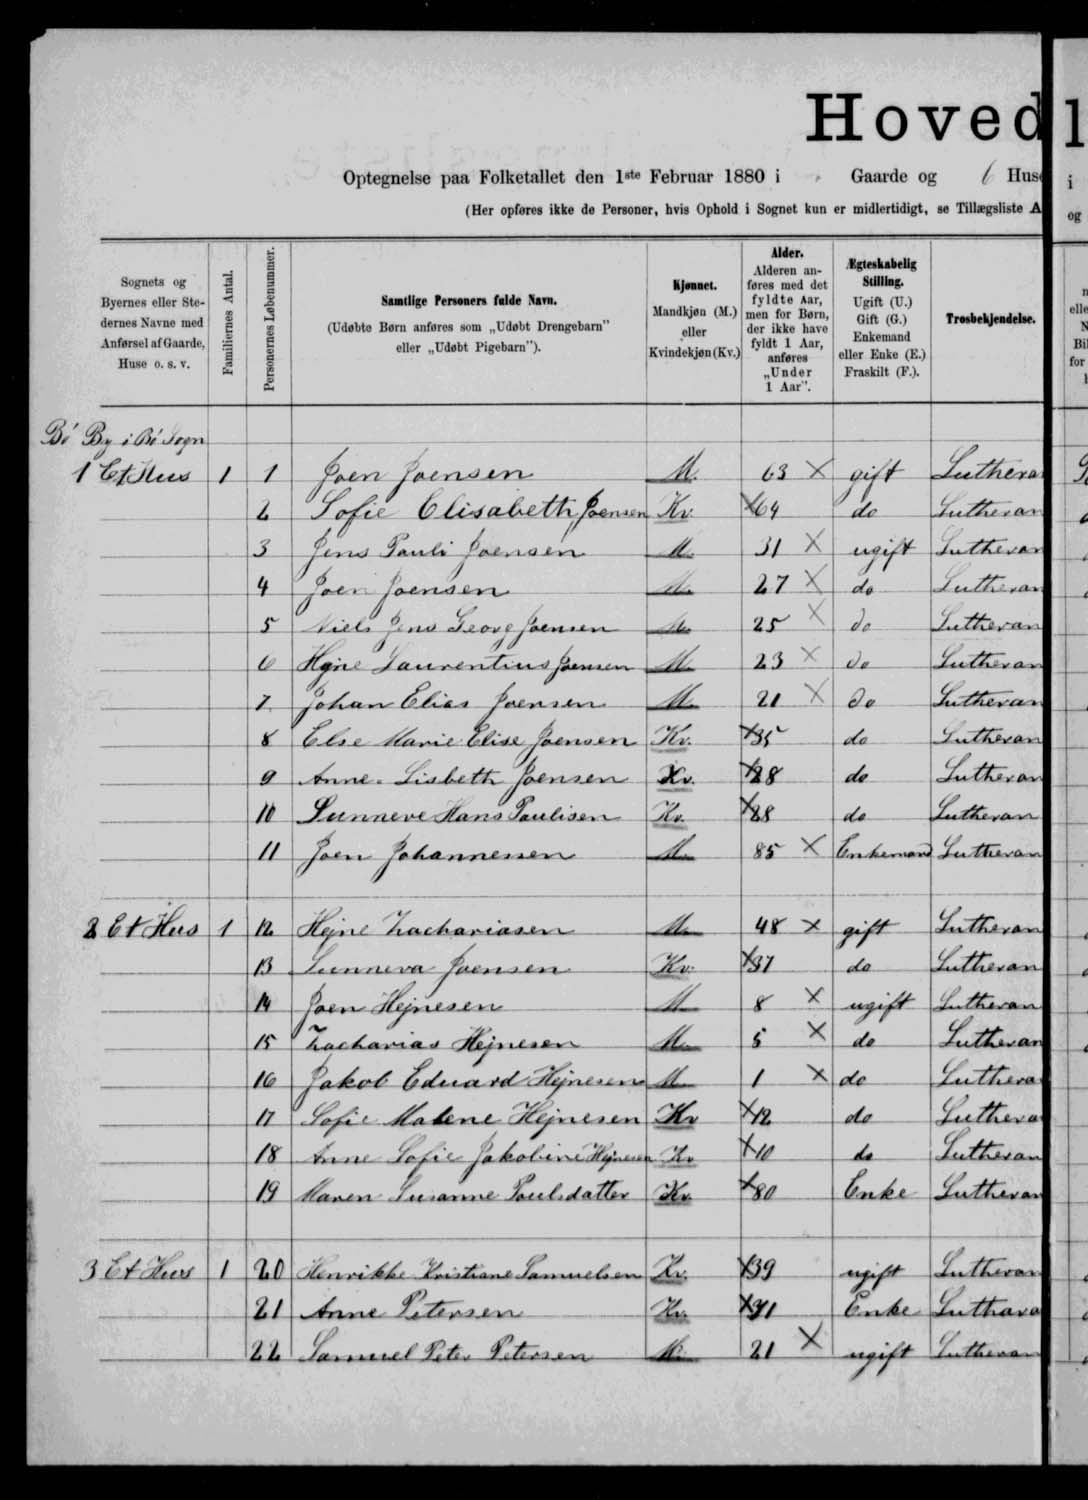 Hoved
Optegnelse paa Folketallet den 1ste Februar 1880 i Gaarde og 6 Huse
(Her opføres ikke de Personer, hvis Ophold i Sognet kun er midlertidigt, se Tillægsliste A
Sognets og Byernes eller Stedernes Navne med Anførsel af Gaarde, Huse o. s. v.
Familiernes Antal.
Personernes Løbenummer.
Samtlige Personers fulde Navn.
(Udøbte Børn anføres som „Udøbt Drengebarn" eller „Udøbt Pigebarn").
Kjønnet.
Mandkjøn (M.) eller Kvindekjøn (Kv.)
Alder.
Alderen anføres med det fyldte Aar, men for Børn, der ikke have fyldt 1 Aar, anføres „Under 1 Aar".
Ægteskabelig Stilling.
Ugift (U.) Gift (G.) Enkemand eller Enke (E.) Fraskilt (F.).
Trosbekjendelse.
Bö By i Bö Sogn
1 Et Hus 1 1 Joen Joensen M. 63 X gift Luthera
2 Sofie Elisabeth Joensen Kv. X 64 do Lutheran
3 Jens Pauli Joensen M. 31 X ugift Lutheran
4 Joen Joensen M. 27 X do Lutheran
5 Niels Jens Georg Joensen M. 25 X do Lutheran
6 Hejne Laurentius Joensen M. 23 X do Lutheran
7 Johan Elias Joensen M. 21 X do Lutheran
8 Else Marie Elise Joensen Kv. X 35 do Lutheran
9 Anne Lisbeth Joensen Kv. X 28 do Lutheran
10 Sunneve Hans Paulisen Kv. X 28 do Lutheran
11 Joen Johannessen M. 85 X Enkemand Lutheran
2 Et Hus 1 12 Hejne Zachariasen M. 48 X gift Lutheran
13 Sunneva Joensen Kv. X 37 do Lutheran
14 Joen Hejnesen M. 8 X ugift Lutheran
15 Zacharias Hejnesen M. 5 X do Lutheran
16 Jakob Eduard Hejnesen M. 1 X do Luthera
17 Sofie Malene Hejnesen Kv X 12 do Luthera
18 Anne Sofie Jakobine Hejnesen Kv X 10 do Lutheran
19 Maren Susanne Poulsdatter Kv. X 80 Enke Lutheran
3 Et Hus 1 20 Henrikke Kristiane Samuelsen Kv. X 39 ugift Lutheran
21 Anne Petersen Kv. X Enke Luthera
22 Samuel Peter Petersen M. 21 X ugift Lutheran